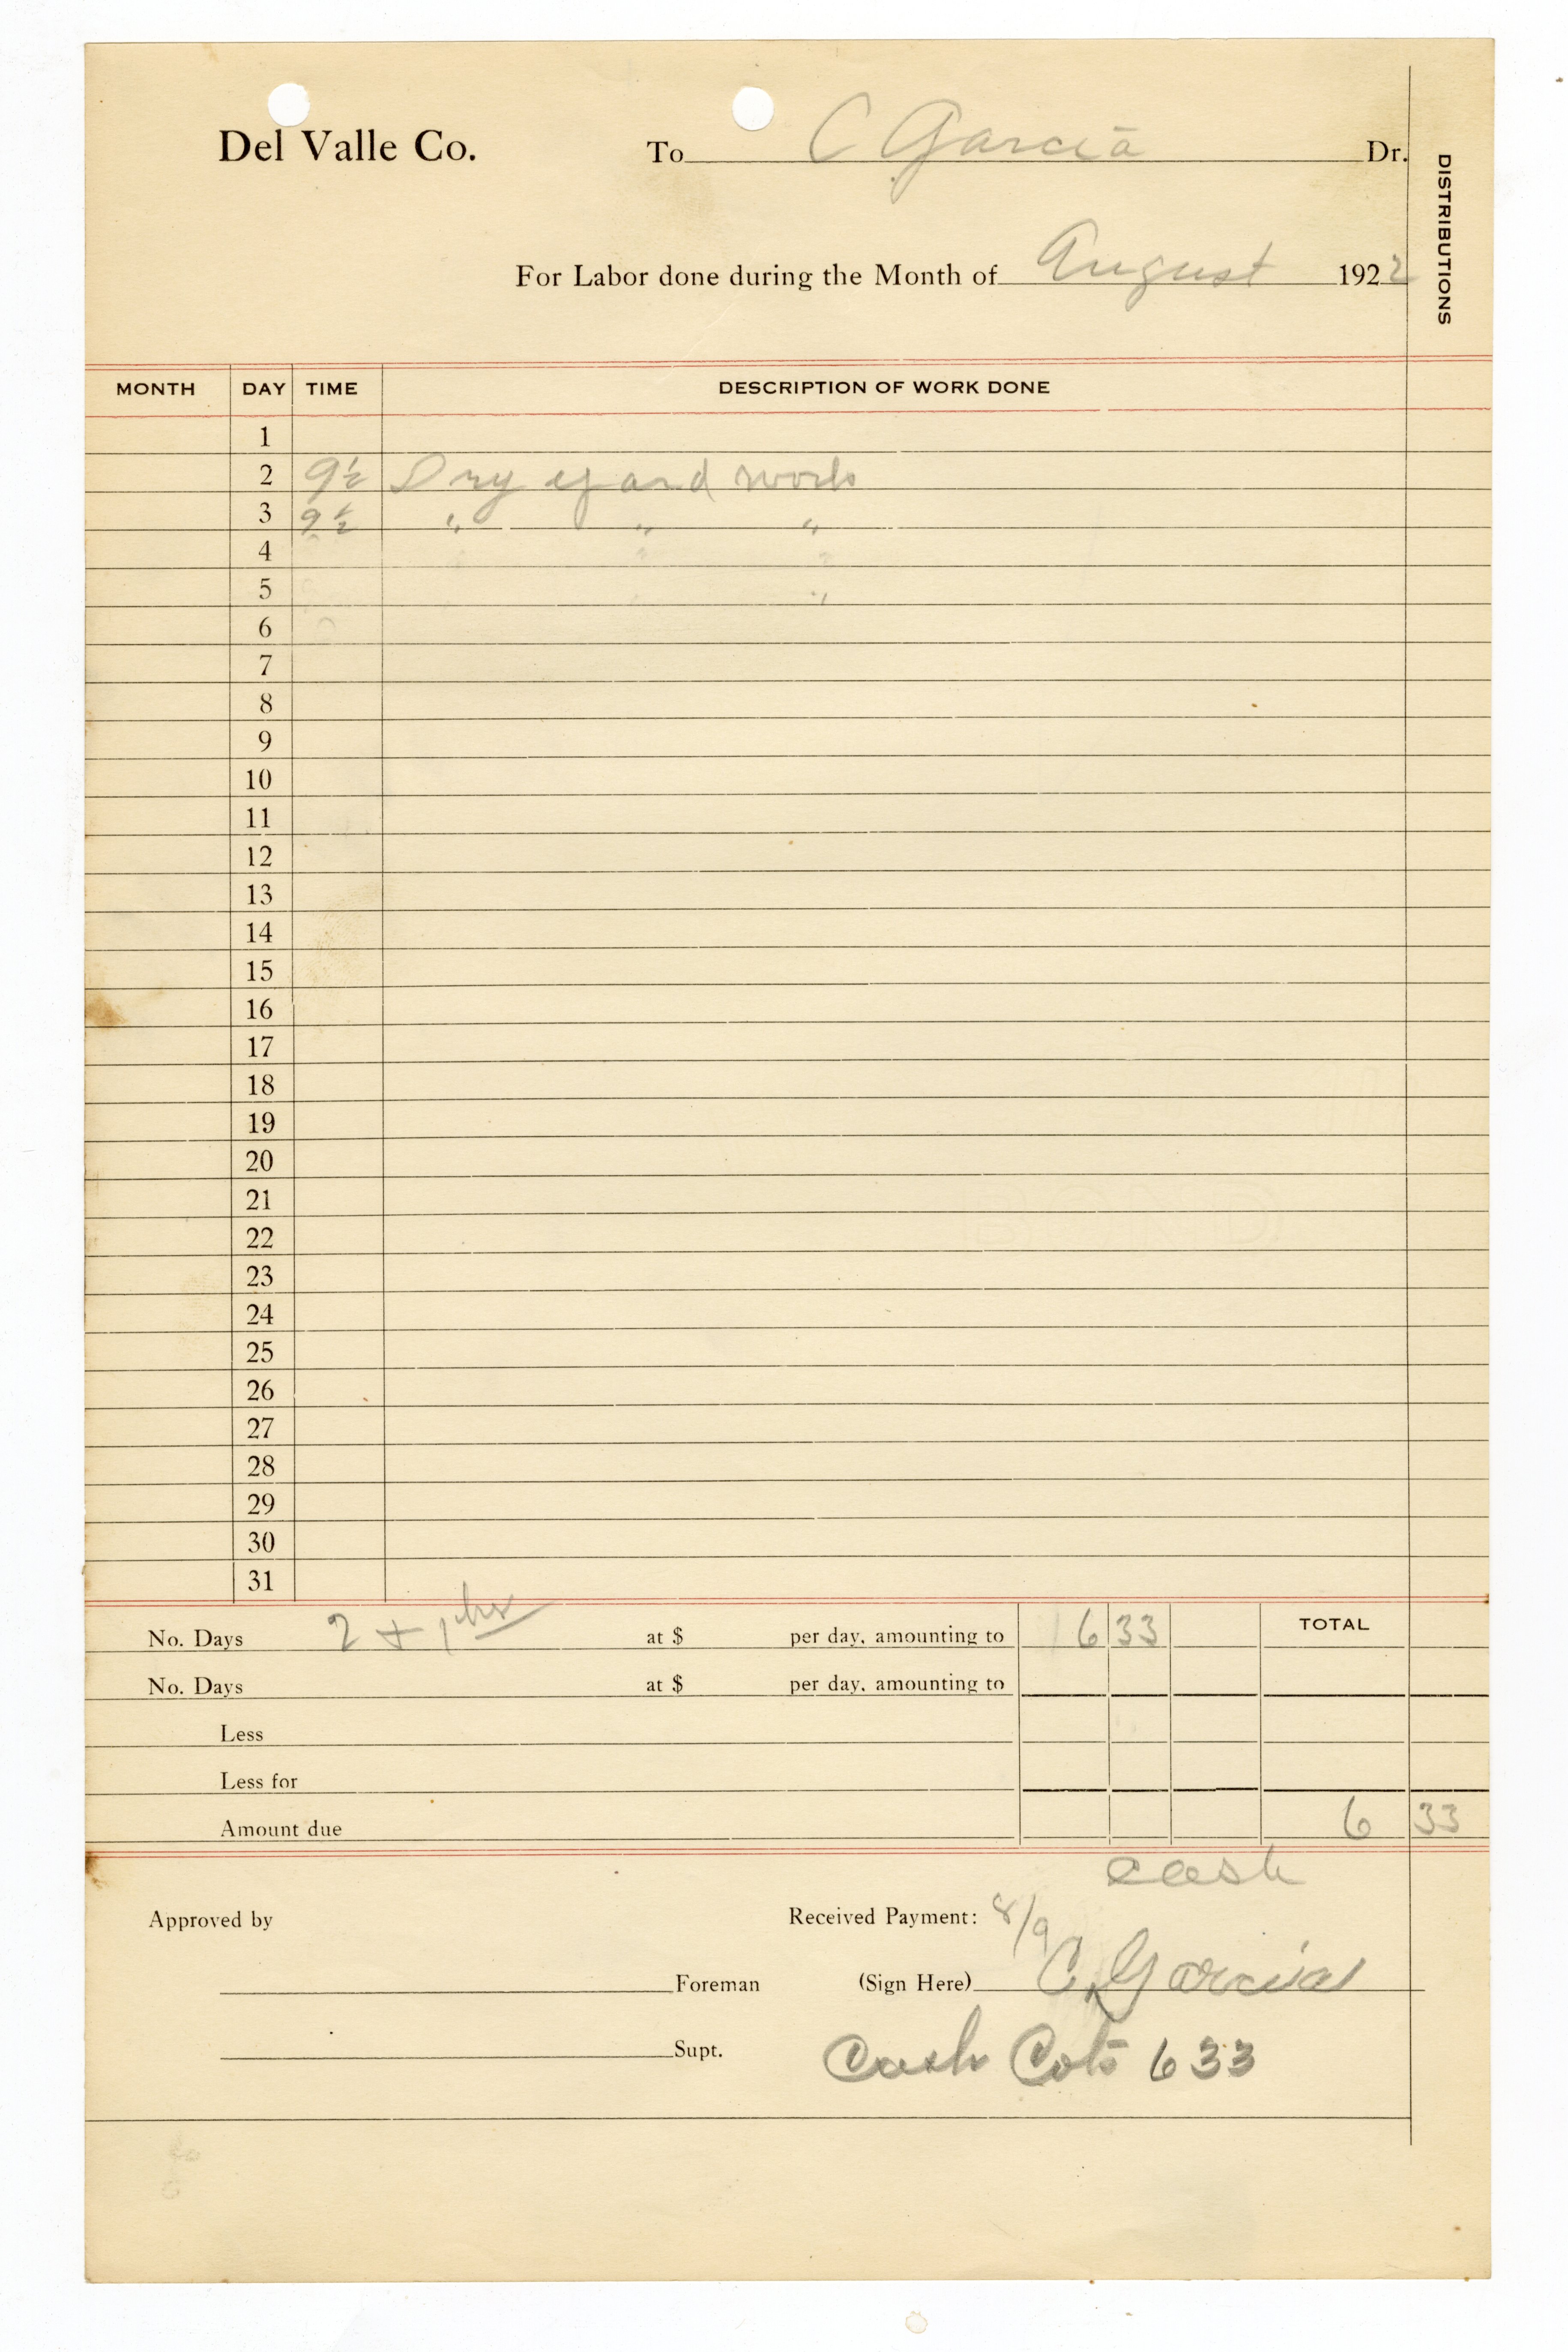 Del Valle Co. To C Garcia Dr.
DISTRIBUTIONS
For Labor done during the Month of August 1922
MONTH DAY TIME DESCRIPTION OF WORK DONE
1
2 9½ Dry yard work
3 9½ " " "
4
5
6
7
8
9
10
11
12
13
14
15
16
17
18
19
20
21
22
23
24
25
26
27
28
29
30
31
No. Days 2 + 1 hr at $ per day, amounting to 6 33 TOTAL
No. Days at $ per day, amounting to
Less
Less for
Amount due 6 33
cash
Approved by Received Payment: 8/9
Foreman (Sign Here) C. Garcia
Supt. Cash 633